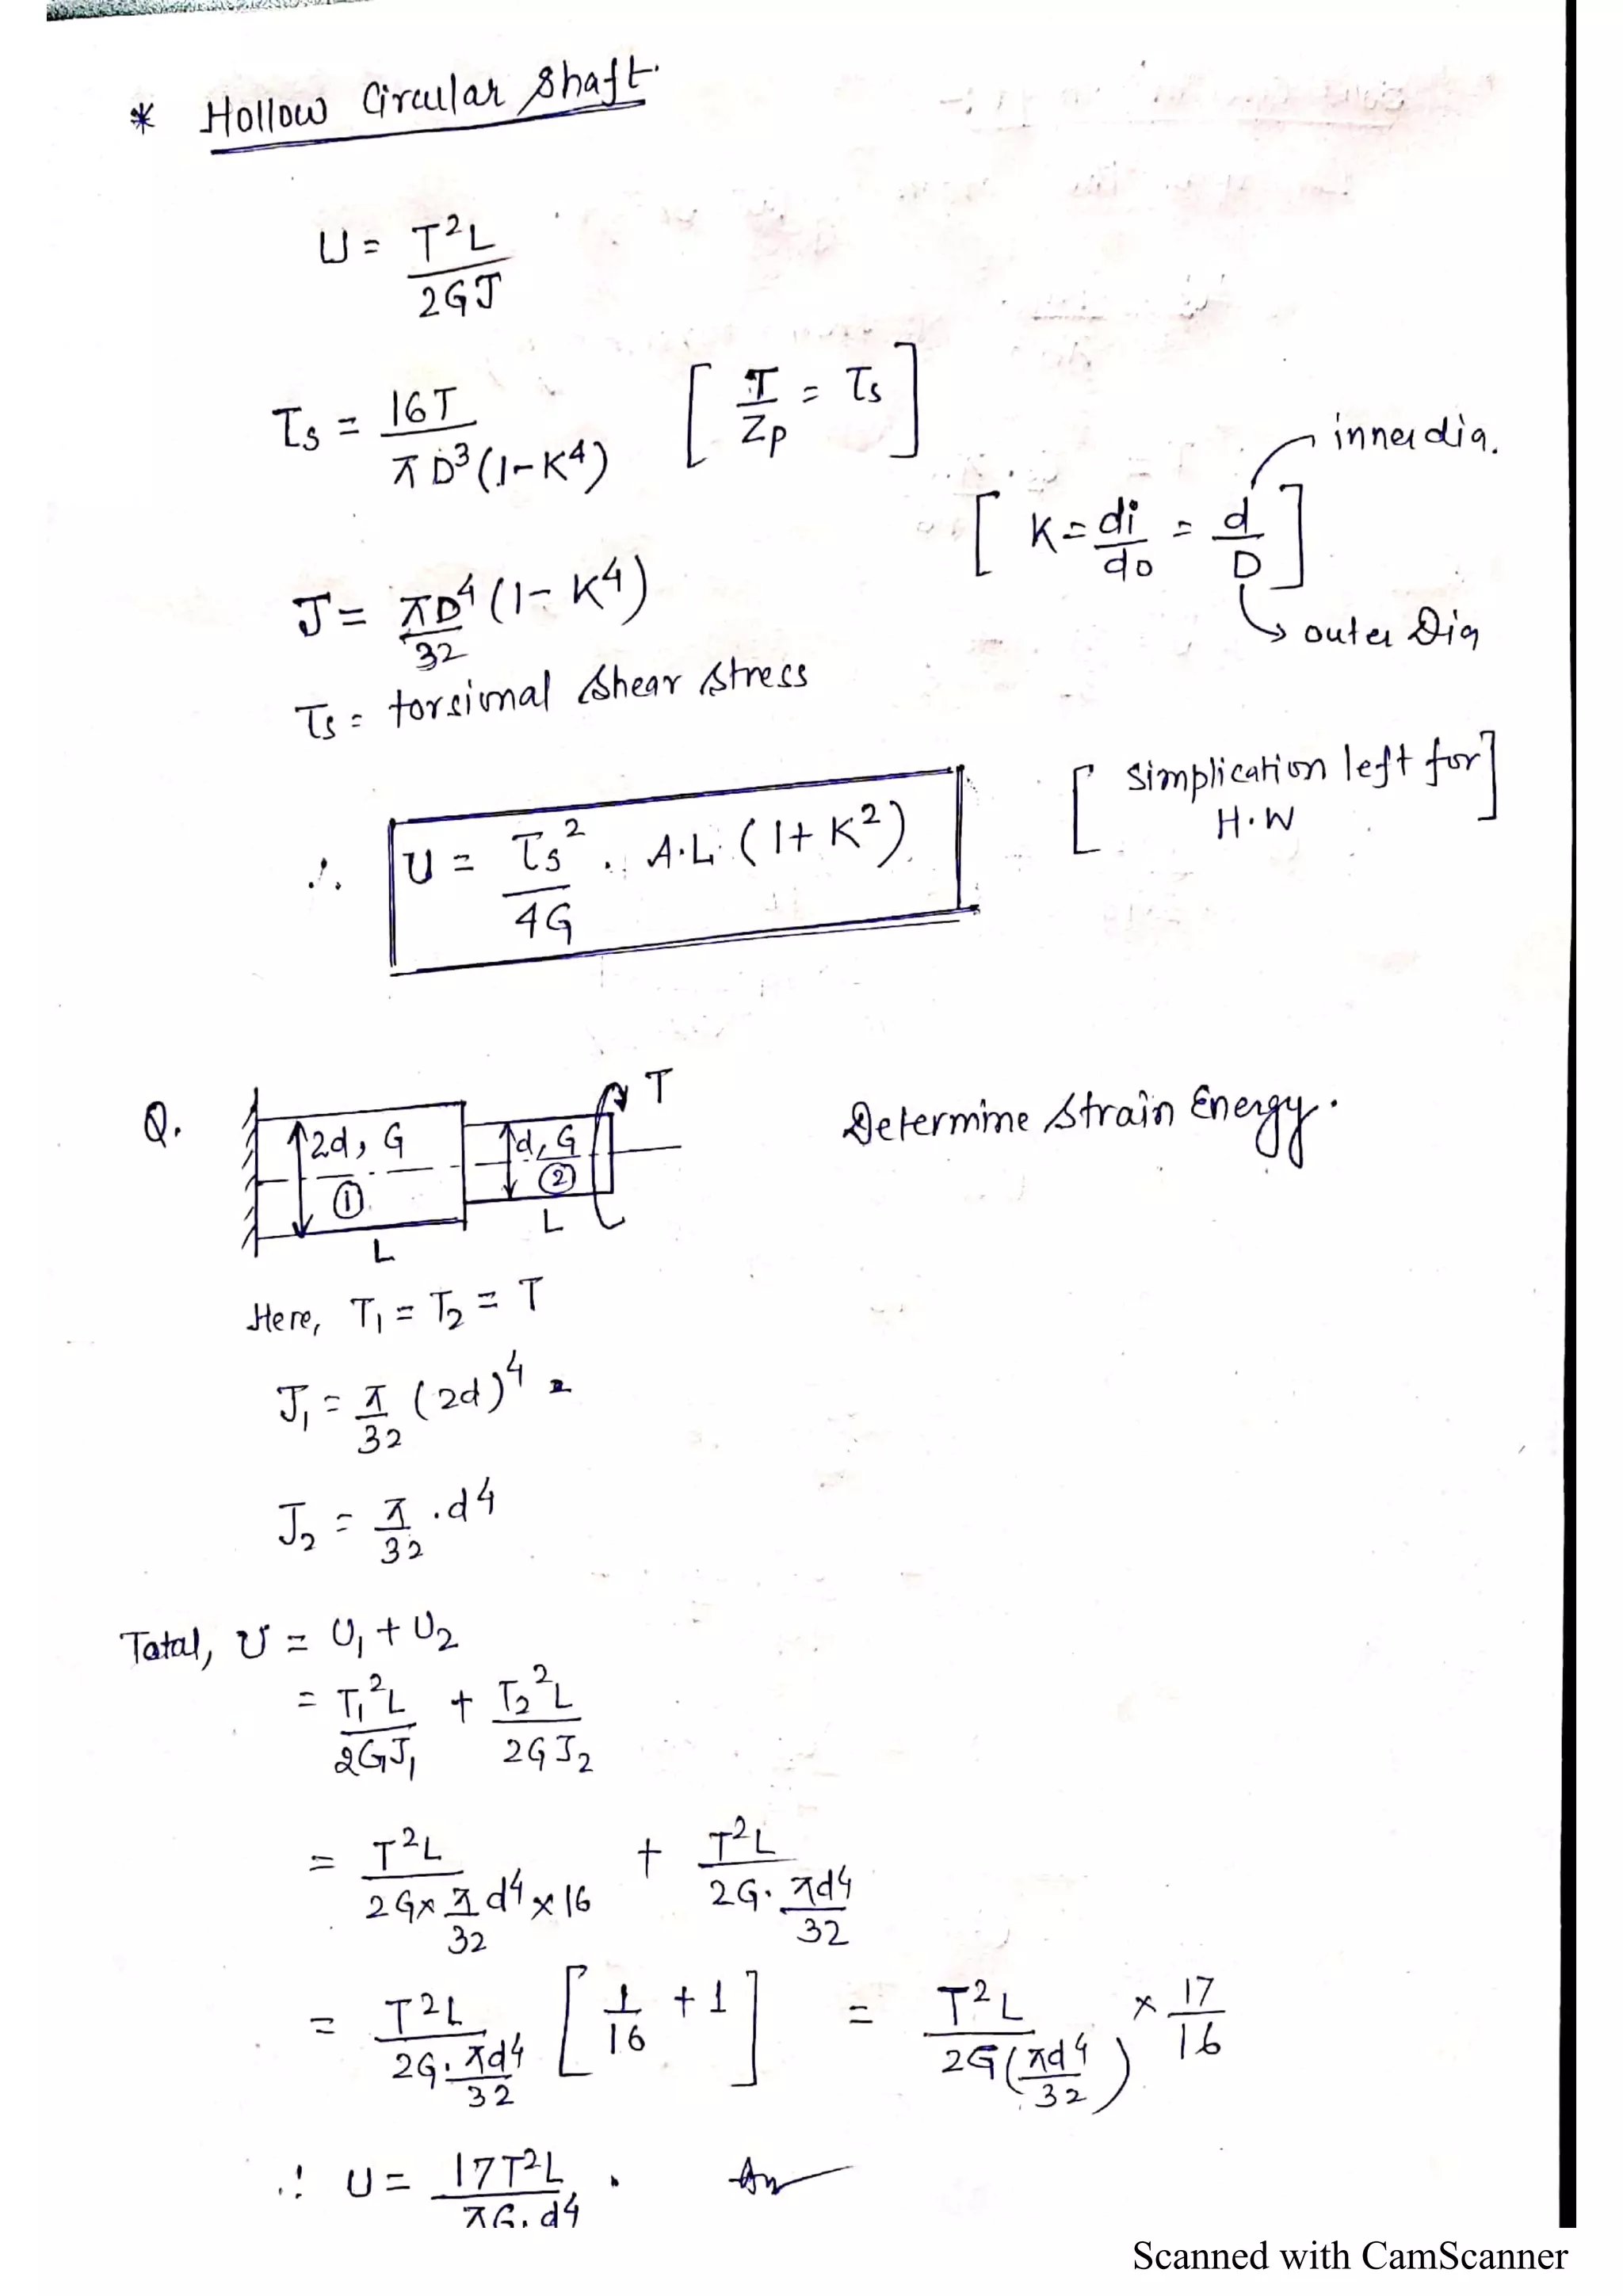 * Hollow Circular Shaft.
U = T²L / 2GJ
τs = 16T / πD³(1-K⁴) [ T / Zp = τs ]
[ K = di / do = d / D ] inner dia.
outer Dia
J = πD⁴ / 32 (1- K⁴)
τs = torsional shear stress
∴ U = τs² / 4G . A.L. (1+ K²) [ Simplication left for H.W ]
Q. 2d, G ① L d, G ② L T Determine strain Energy.
Here, T₁ = T₂ = T
J₁ = π / 32 (2d)⁴ =
J₂ = π / 32 . d⁴
Total, U = U₁ + U₂
= T₁²L / 2GJ₁ + T₂²L / 2GJ₂
= T²L / 2G× π / 32 d⁴×16 + T²L / 2G. πd⁴ / 32
= T²L / 2G. πd⁴ / 32 [ 1 / 16 + 1 ] = T²L / 2G(πd⁴ / 32) × 17 / 16
∴ U = 17T²L / πG.d⁴ . Ans
Scanned with CamScanner